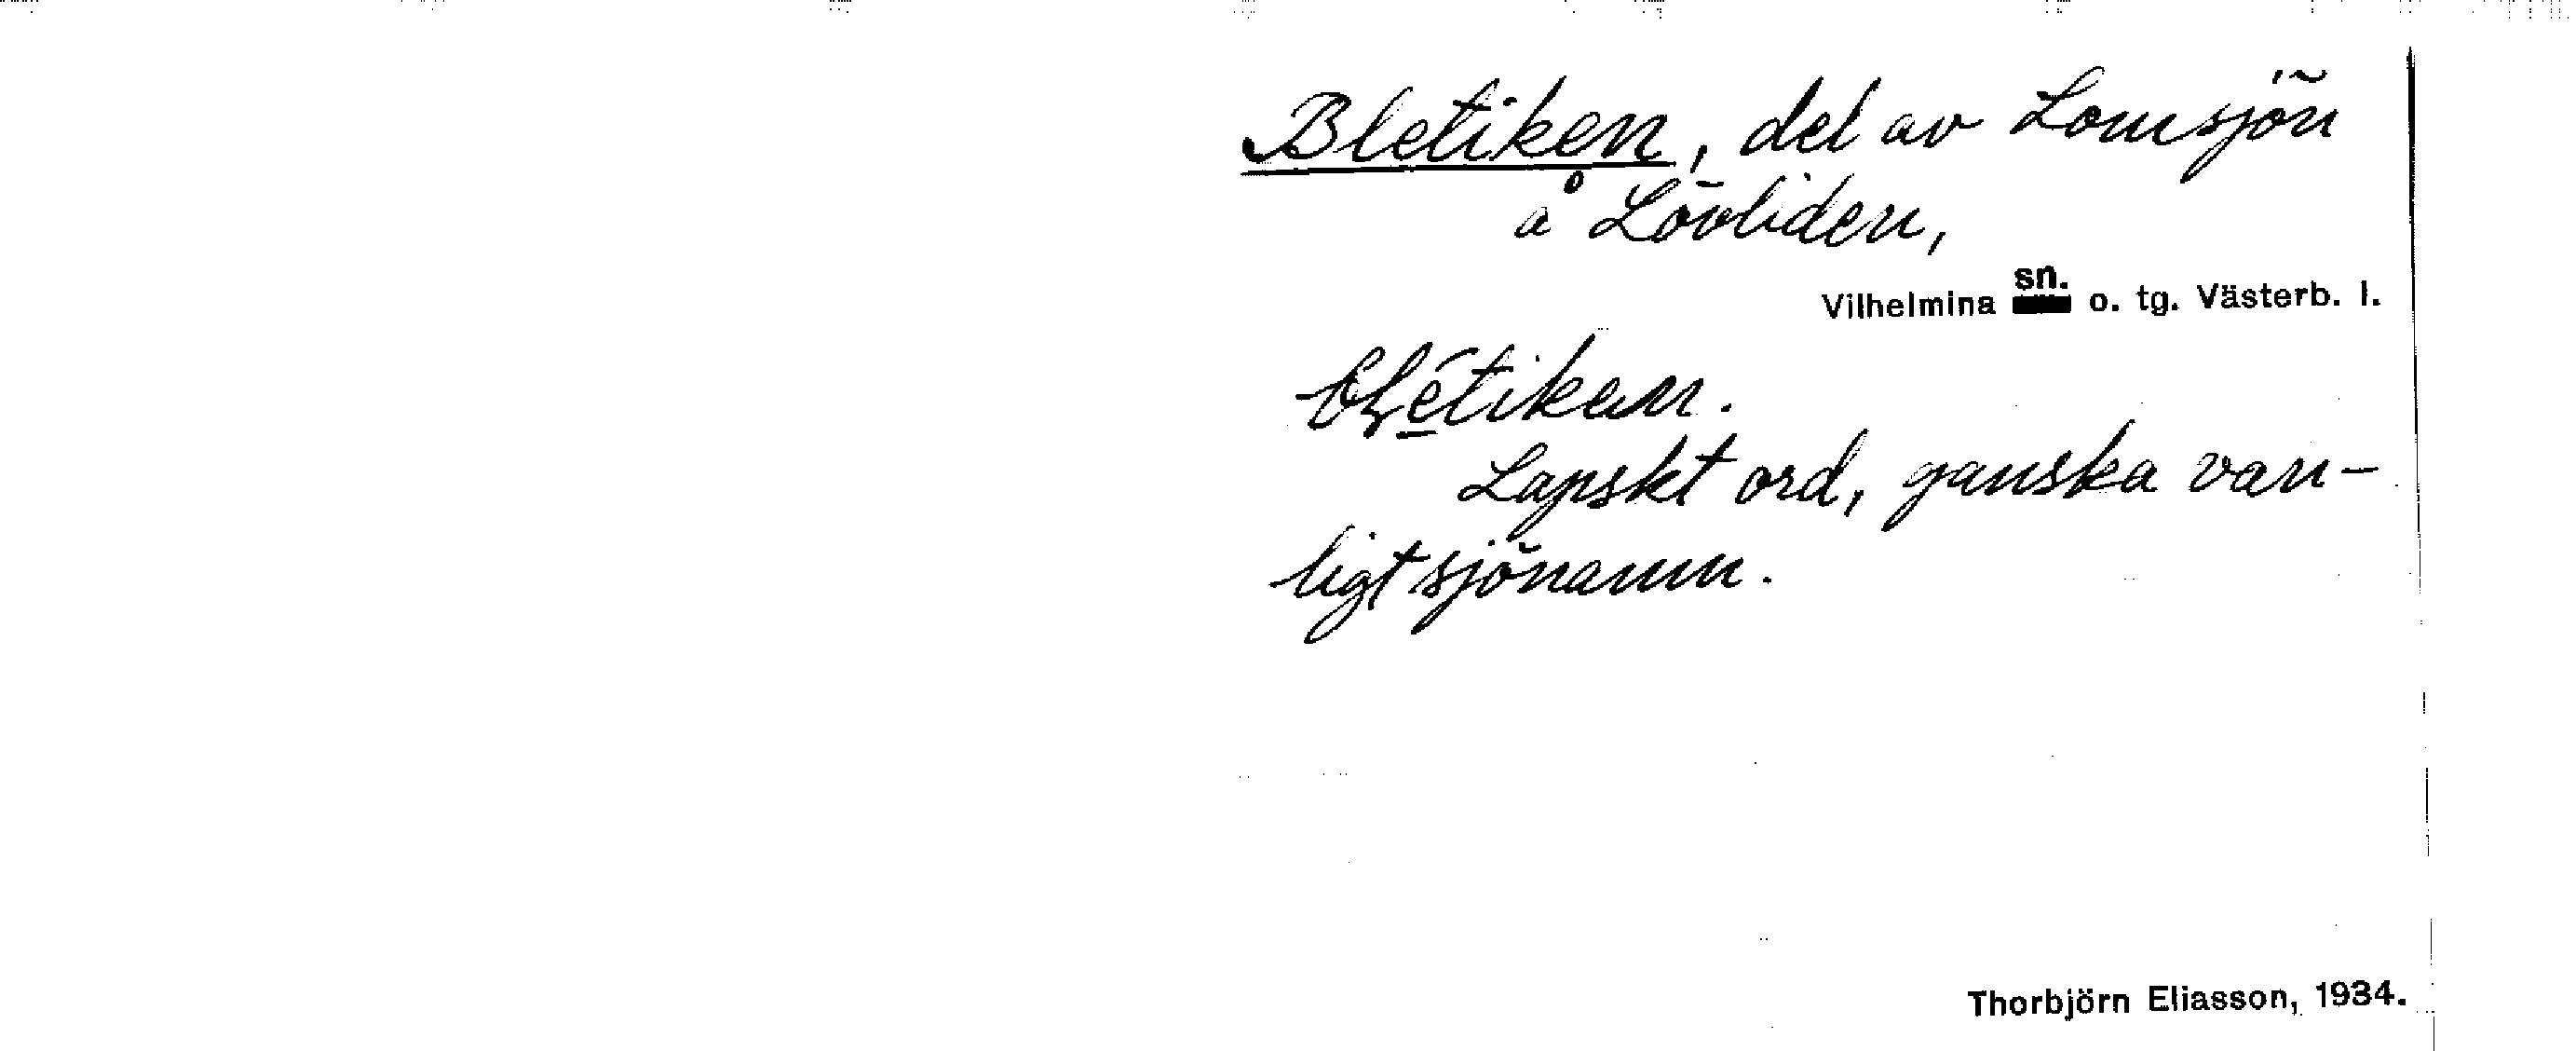 Bletiken, del av Lomsjön
å Lövliden,
Vilhelmina sn. o. tg. Västerb. l.
Lapskt ord, ganska van-
ligt sjönamn.
Thorbjörn Eliasson, 1934.